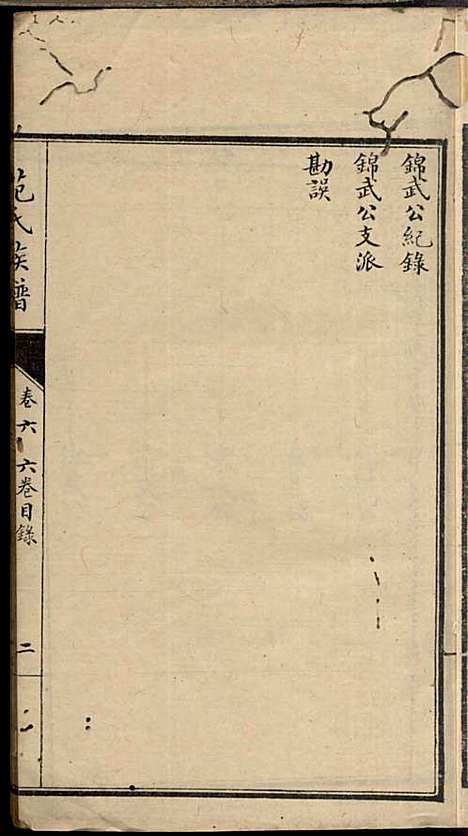 錦武公紀錄
錦武公支派
勘誤
范氏族譜
卷六 六卷目錄
二